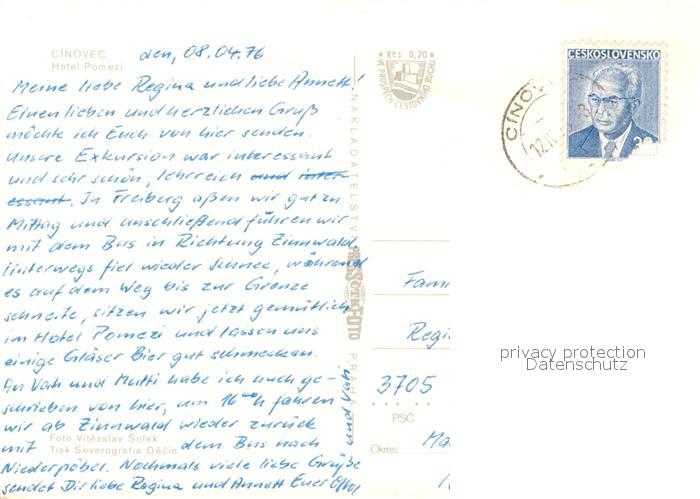 CÍNOVEC
Hotel Pomezi
den, 08.04.76
Meine liebe Regina und liebe Annett!
Einen lieben und herzlichen Gruß
möchte ich Euch von hier senden.
Unsere Exkursion war interessant
und sehr schön, lehrreich und inter-
essant. In Freiberg aßen wir gut zu
Mittag und anschließend führen wir
mit dem Bus in Richtung Zinnwald
Unterwegs fiel wieder Schnee, während
es auf dem Weg bis zur Grenze
schneite, sitzen wir jetzt gemütlich
im Hotel Pomezi und lassen uns
einige Gläser Bier gut schmecken.
An Vati und Mutti habe ich auch ge-
schrieben von hier, um 16 h fahren
wir ab Zinnwald wieder zurück
mit dem Bus nach
Niederpöbel. Nochmals viele liebe Grüße
sendet Dir liebe Regina und Annett Euer
und Vati
Foto Vítězslav Solek
Tisk Severografia Děčín
NAKLADATELSTVÍ
PRESSFOTO
PRAHA
Kčs 0,20
VE PROSPĚCH CESTOVNÍHO RUCHU
ČESKOSLOVENSKO
30
CÍNOV
12.IV
Fami
Regi
3705
PSČ
Okres:
Ma
privacy protection
Datenschutz